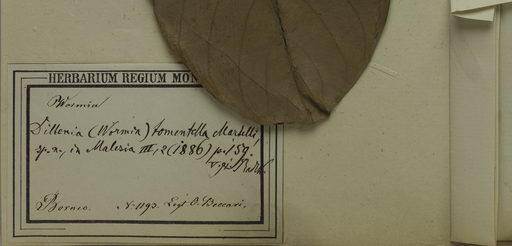 HERBARIUM REGIUM MON
Wormia
Dillenia (Wormia) tomentella Martelli,
sp. n., in Malesia III, 2 (1886) p. 159.
Borneo. N. 1193. Legt O. Beccari.